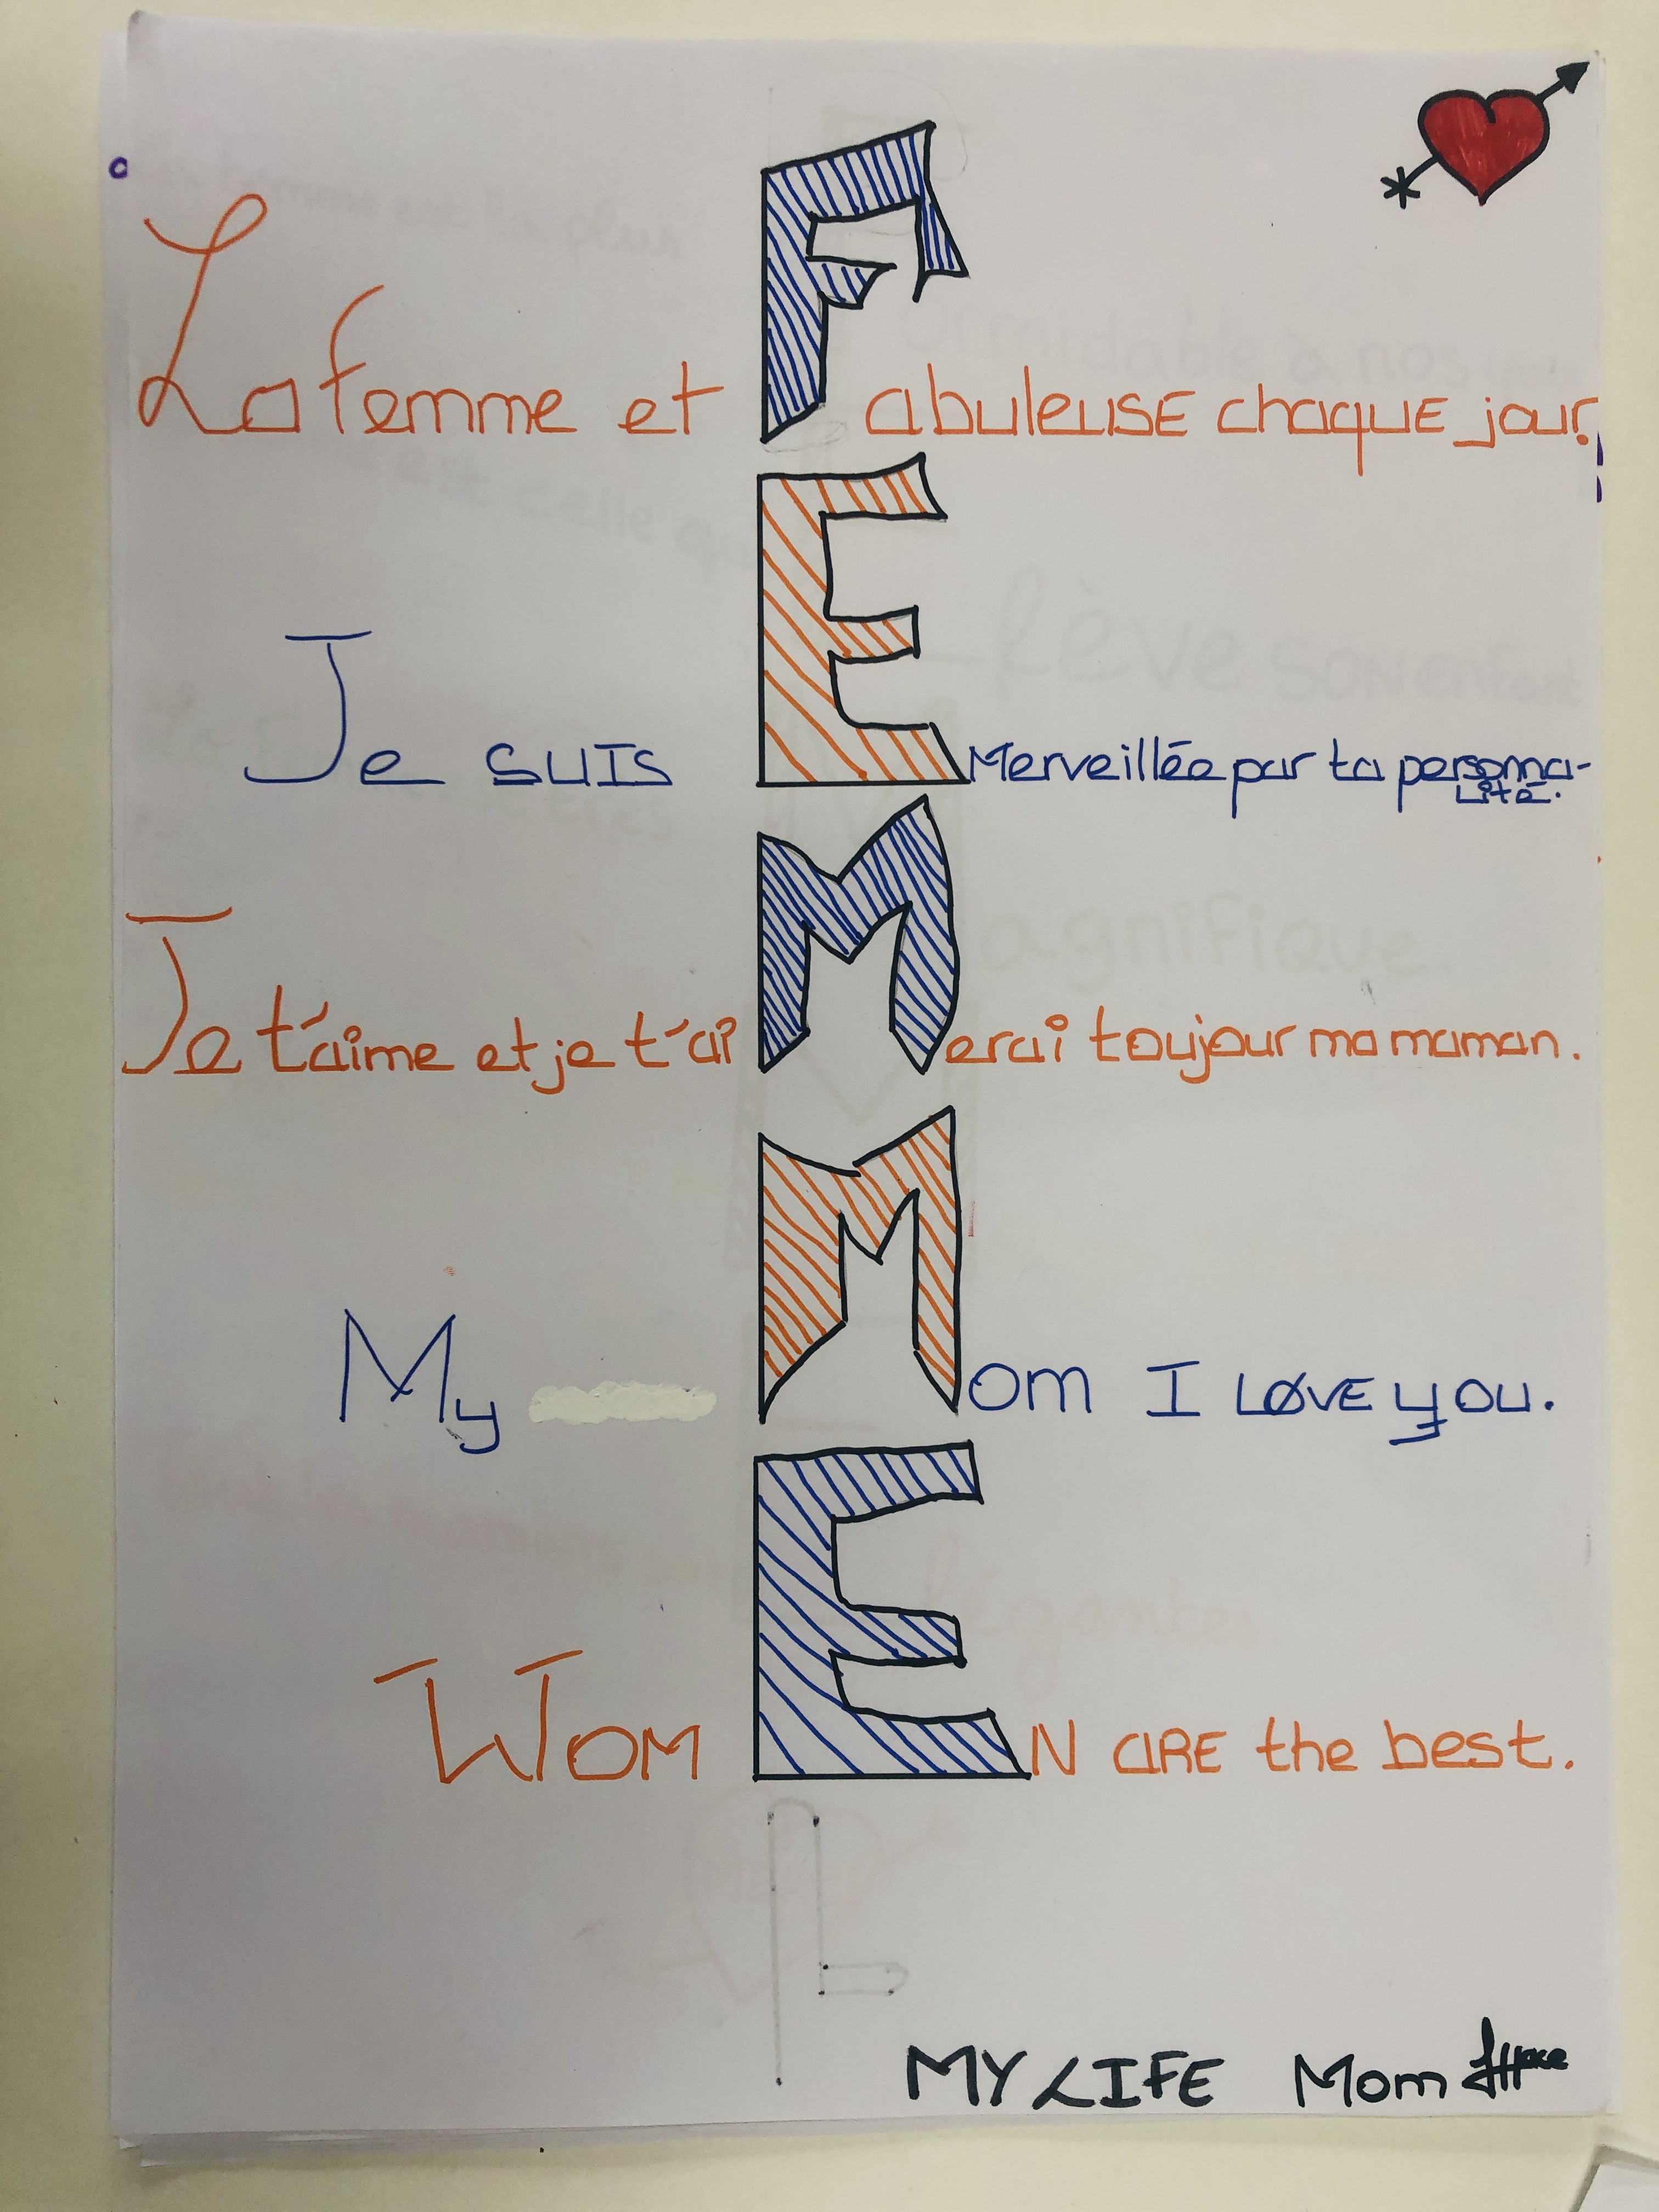 La femme et Fabuleuse chaque jour.
Je suis EMerveillée par ta personna-
lité.
Je t'aime et je t'aiMerai toujour ma maman.
My Mom I LOVE YOU.
WOMEN ARE the best.
MY LIFE Mom